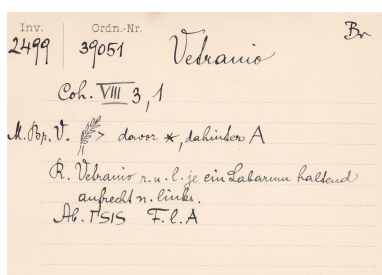 Inv. Ordn.-Nr. Br
2499 39051 Vetranio
Coh. VIII 3, 1
M. Bp. V. > davor *, dahinter A
R. Vetranio r. u. l. je ein Labarum haltend
aufrecht n. links.
Ab. ΓSIS F. l. A